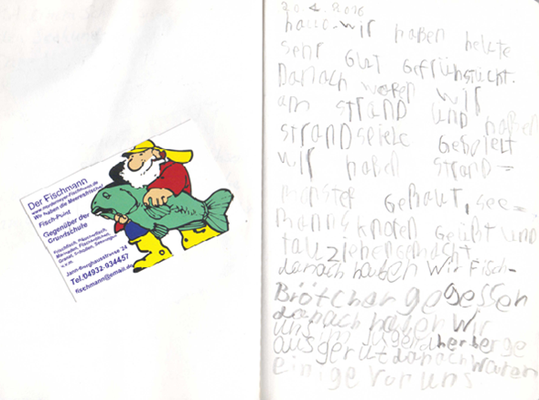 Der Fischmann
Wir haben die Meeresfrische!
Fisch-Punt
Gegenüber der
Grundschule
Jann-Berghausstrasse 24
Tel: 04932-934457
fischmann@email.de
20.4.2016
wir haben heute
sehr Gut Gefrühstückt.
Danach waren wir
am Strand und haben
strandspiele Gespielt
wir haben strand=
monster Gebaut, see-
mannsknoten Geübt und
tauziehen
danach haben wir Fisch-
Brötchen gegessen
danach haben wir
uns im Jugendherberge
ausgerut danach waren
einige von uns